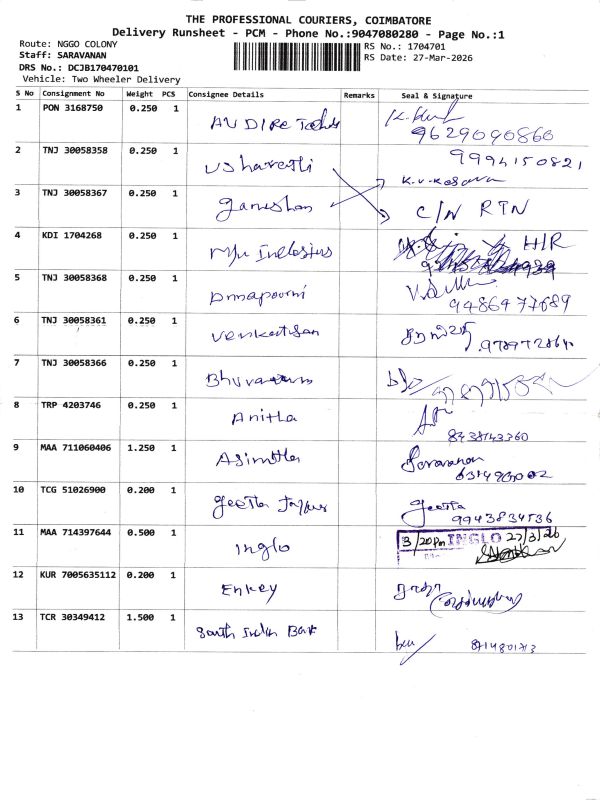 THE PROFESSIONAL COURIERS, COIMBATORE
Delivery Runsheet - PCM - Phone No.:9047080280 - Page No.:1
Route: NGGO COLONY
Staff: SARAVANAN
DRS No.: DCJB170470101
Vehicle: Two Wheeler Delivery
RS No.: 1704701
RS Date: 27-Mar-2026
S No Consignment No Weight PCS Consignee Details Remarks Seal & Signature
1 PON 3168750 0.250 1
9629090860
2 TNJ 30058358 0.250 1 Usharethi 9994150821
3 TNJ 30058367 0.250 1 Ganeshan C/N RTN
4 KDI 1704268 0.250 1 H/R
5 TNJ 30058368 0.250 1 Annapoorni
9486977689
6 TNJ 30058361 0.250 1 Venkatesan
7 TNJ 30058366 0.250 1
8 TRP 4203746 0.250 1 Anitha
8438143360
9 MAA 711060406 1.250 1 Saravanan
10 TCG 51026900 0.200 1 Geetha Geetha
9943834536
11 MAA 714397644 0.500 1 Inglo 3/20pm INGLO 27/3/26
12 KUR 7005635112 0.200 1 Enkey
13 TCR 30349412 1.500 1 South Indin Bank